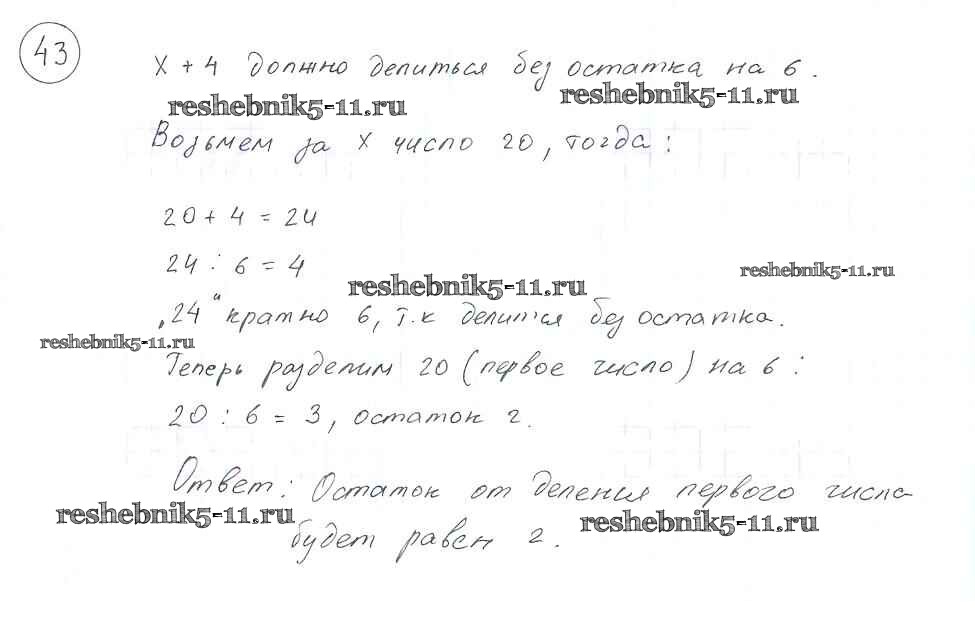 43
х + 4 должно делиться без остатка на 6.
reshebnik5-11.ru
reshebnik5-11.ru
Возьмем за х число 20, тогда:
20 + 4 = 24
24 : 6 = 4
reshebnik5-11.ru
reshebnik5-11.ru
„24“ кратно 6, т.к делится без остатка.
reshebnik5-11.ru
Теперь разделим 20 (первое число) на 6:
20 : 6 = 3, остаток 2.
Ответ: Остаток от деления первого числа
reshebnik5-11.ru
reshebnik5-11.ru
будет равен 2.